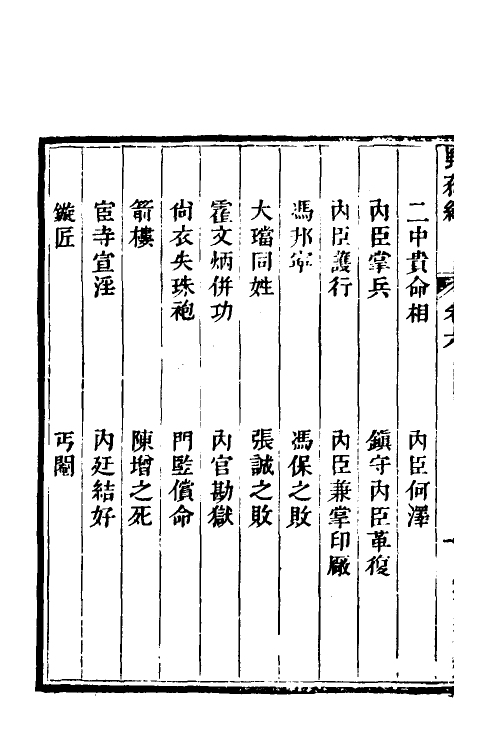 二中貴命相　內臣何澤
內臣掌兵　鎮守內臣革復
內臣護行　內臣兼掌印廠
馮邦寧　馮保之敗
大璫同姓　張誠之敗
霍文炳併功　內官勘獄
尙衣失珠袍　門監償命
箭樓　陳增之死
宦寺宣淫　內廷結好
鏇匠　丐閹